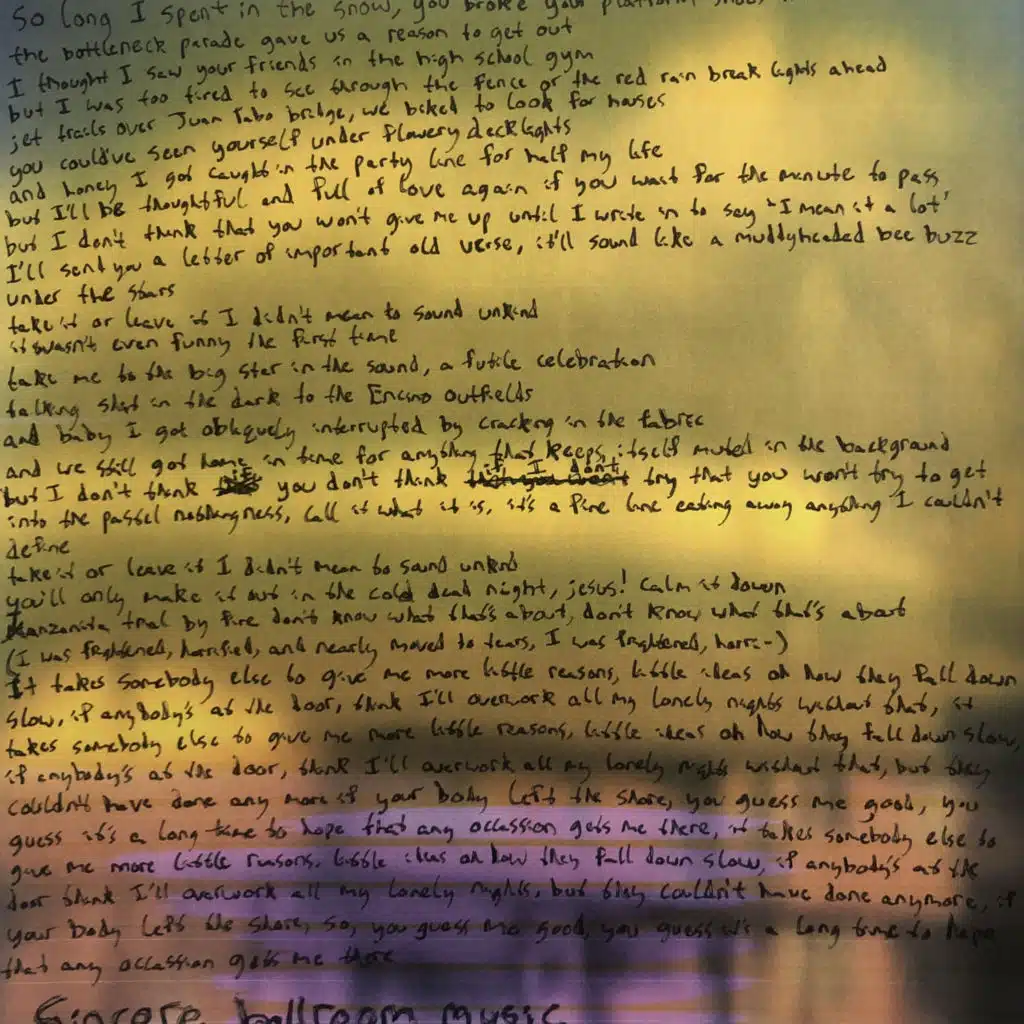 So long I spent in the snow, you broke your platform shoes
the bottleneck parade gave us a reason to get out
I thought I saw your friends in the high school gym
but I was too tired to see through the fence or the red rain break lights ahead
jet trails over Juan Tabo bridge, we biked to look for houses
you could've seen yourself under flowery decklights
and honey I got caught in the party line for half my life
but I'll be thoughtful and full of love again if you wait for the minute to pass
but I don't think that you won't give me up until I write in to say "I mean it a lot"
I'll send you a letter of important old verse, it'll sound like a muddyheaded bee buzz
under the stars
take it or leave it I didn't mean to sound unkind
it wasn't even funny the first time
take me to the big star in the sound, a futile celebration
talking shit in the dark to the Encino outfields
and baby I got obliquely interrupted by cracking in the fabric
and we still got home in time for anything that keeps itself muted in the background
but I don't think you don't think if I don't try that you won't try to get
into the passel nothingness, call it what it is, it's a fine line eating away anything I couldn't
define
take it or leave it I didn't mean to sound unkind
you'll only make it out in the cold dead night, jesus! calm it down
Manzanita trial by fire don't know what that's about, don't know what that's about
(I was frightened, horrified, and nearly moved to tears, I was frightened, horri-)
It takes somebody else to give me more little reasons, little ideas oh how they fall down
slow, if anybody's at the door, think I'll overwork all my lonely nights without that, it
takes somebody else to give me more little reasons, little ideas oh how they fall down slow,
if anybody's at the door, think I'll overwork all my lonely nights without that, but they
couldn't have done any more if your body left the shore, you guess me good, you
guess it's a long time to hope that any occassion gets me there, it takes somebody else to
give me more little reasons, little ideas oh how they fall down slow, if anybody's at the
door think I'll overwork all my lonely nights, but they couldn't have done anymore, if
your body left the shore, so, you guess me good, you guess it's a long time to hope
that any occassion gets me there
Sincere ballroom music